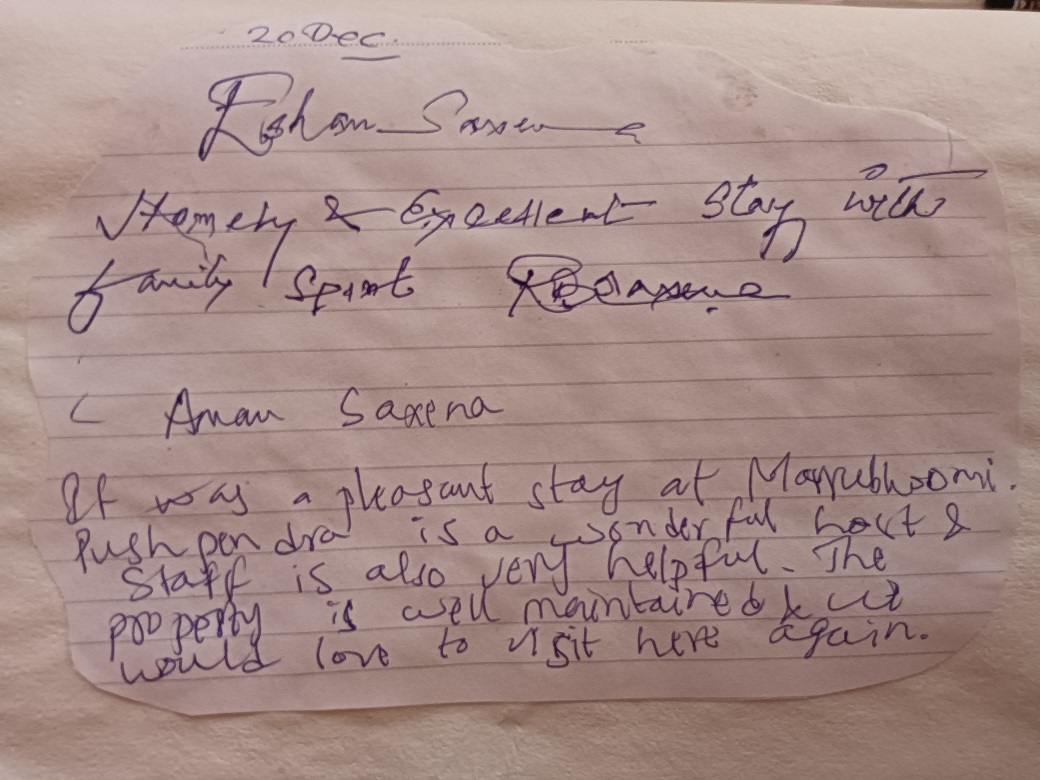 20 Dec.
Eshan Saxena
Homely & Excellent Stay with
family spirit Saxena
Aman Saxena
It was a pleasant stay at Marrubhoomi.
Pushpendra is a wonderful host &
Staff is also very helpful. The
property is well maintained & we
would love to visit here again.